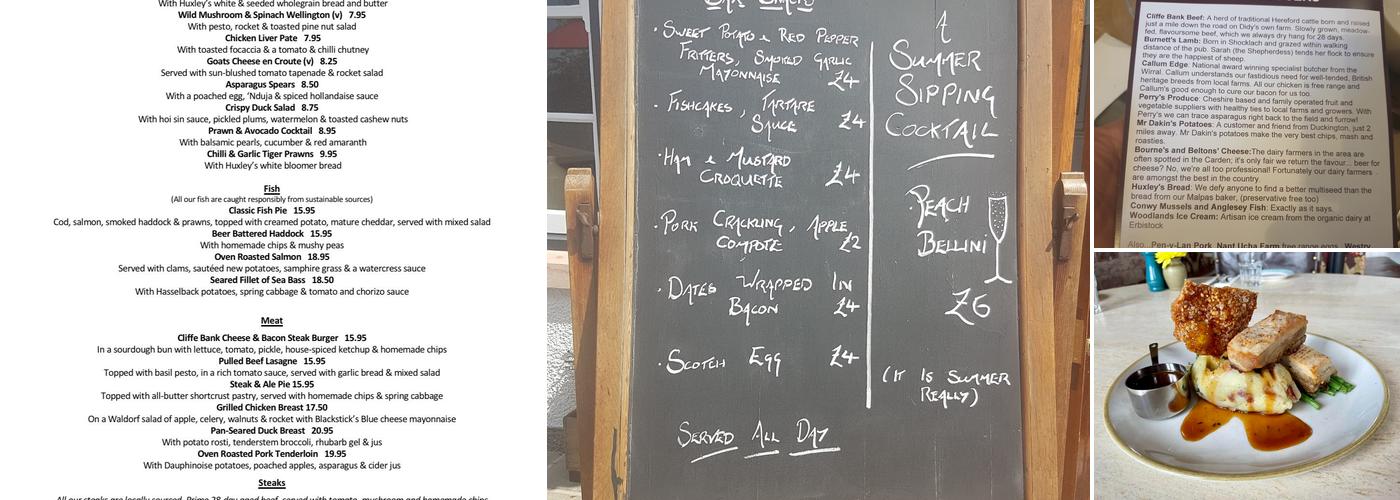 With Huxley's white & seeded wholegrain bread and butter
Wild Mushroom & Spinach Wellington (v) 7.95
With pesto, rocket & toasted pine nut salad
Chicken Liver Pate 7.95
With toasted focaccia & a tomato & chilli chutney
Goats Cheese en Croute (v) 8.25
Served with sun-blushed tomato tapenade & rocket salad
Asparagus Spears 8.50
With a poached egg, 'Nduja & spiced hollandaise sauce
Crispy Duck Salad 8.75
With hoi sin sauce, pickled plums, watermelon & toasted cashew nuts
Prawn & Avocado Cocktail 8.95
With balsamic pearls, cucumber & red amaranth
Chilli & Garlic Tiger Prawns 9.95
With Huxley's white bloomer bread
Fish
(All our fish are caught responsibly from sustainable sources)
Classic Fish Pie 15.95
Cod, salmon, smoked haddock & prawns, topped with creamed potato, mature cheddar, served with mixed salad
Beer Battered Haddock 15.95
With homemade chips & mushy peas
Oven Roasted Salmon 18.95
Served with clams, sautéed new potatoes, samphire grass & a watercress sauce
Seared Fillet of Sea Bass 18.50
With Hasselback potatoes, spring cabbage & tomato and chorizo sauce
Meat
Cliffe Bank Cheese & Bacon Steak Burger 15.95
In a sourdough bun with lettuce, tomato, pickle, house-spiced ketchup & homemade chips
Pulled Beef Lasagne 15.95
Topped with basil pesto, in a rich tomato sauce, served with garlic bread & mixed salad
Steak & Ale Pie 15.95
Topped with all-butter shortcrust pastry, served with homemade chips & spring cabbage
Grilled Chicken Breast 17.50
On a Waldorf salad of apple, celery, walnuts & rocket with Blackstick's Blue cheese mayonnaise
Pan-Seared Duck Breast 20.95
With potato rosti, tenderstem broccoli, rhubarb gel & jus
Oven Roasted Pork Tenderloin 19.95
With Dauphinoise potatoes, poached apples, asparagus & cider jus
Steaks
All our steaks are locally sourced, Prime 28 day aged beef, served with tomato, mushroom and homemade chips
Bar Snacks
· Sweet Potato & Red Pepper
Fritters, Smoked Garlic
Mayonnaise £4
· Fishcakes, Tartare
Sauce £4
· Ham & Mustard
Croquette £4
· Pork Crackling, Apple
Compote £2
· Dates Wrapped In
Bacon £4
· Scotch Egg £4
Served All Day
A
Summer
Sipping
Cocktail
Peach
Bellini
£6
(It Is Summer
Really)
Cliffe Bank Beef: A herd of traditional Hereford cattle born and raised
just a mile down the road on Didy's own farm. Slowly grown, meadow-
fed, flavoursome beef, which we always dry hang for 28 days.
Burnett's Lamb: Born in Shocklach and grazed within walking
distance of the pub. Sarah (the Shepherdess) tends her flock to ensure
they are the happiest of sheep.
Callum Edge: National award winning specialist butcher from the
Wirral. Callum understands our fastidious need for well-tended, British
heritage breeds from local farms. All our chicken is free range and
Callum's good enough to cure our bacon for us too.
Perry's Produce: Cheshire based and family operated fruit and
vegetable suppliers with healthy ties to local farms and growers. With
Perry's we can trace asparagus right back to the field and furrow!
Mr Dakin's Potatoes: A customer and friend from Duckington, just 2
miles away. Mr Dakin's potatoes make the very best chips, mash and
roasties.
Bourne's and Beltons' Cheese:The dairy farmers in the area are
often spotted in the Garden; it's only fair we return the favour... beer for
cheese? No, we're all too professional! Fortunately our dairy farmers
are amongst the best in the country.
Huxley's Bread: We defy anyone to find a better multiseed than the
bread from our Malpas baker, (preservative free too)
Conwy Mussels and Anglesey Fish: Exactly as it says.
Woodlands Ice Cream: Artisan ice cream from the organic dairy at
Erbistock
Also.. Pen-y-Lan Pork, Nant Ucha Farm free range eggs, Westry